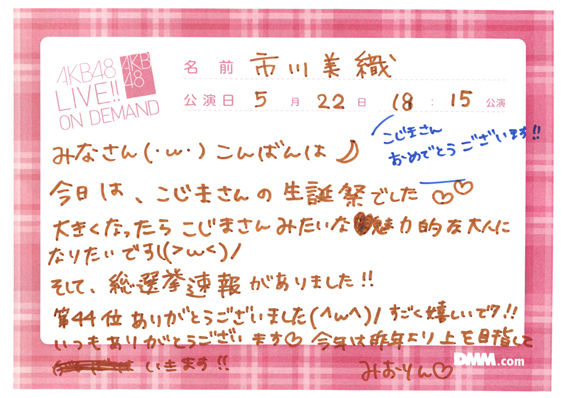 AKB48
LIVE!!
ON DEMAND
AKB
48
名前 市川美織
公演日 5月22日 18:15公演
こじまさん
おめでとうございます!!
みなさん(・ω・)こんばんは
今日は、こじまさんの生誕祭でした♡♡
大きくなったらこじまさんみたいな魅力的な大人に
なりたいです\(>ω<)/
そして、総選挙速報がありました!!
第44位ありがとうございました(^ω^)/ すごく嬉しいです!!
いつもありがとうございます♡ 今年は昨年より上を目指して
いきます!!
みおりん♡
DMM.com